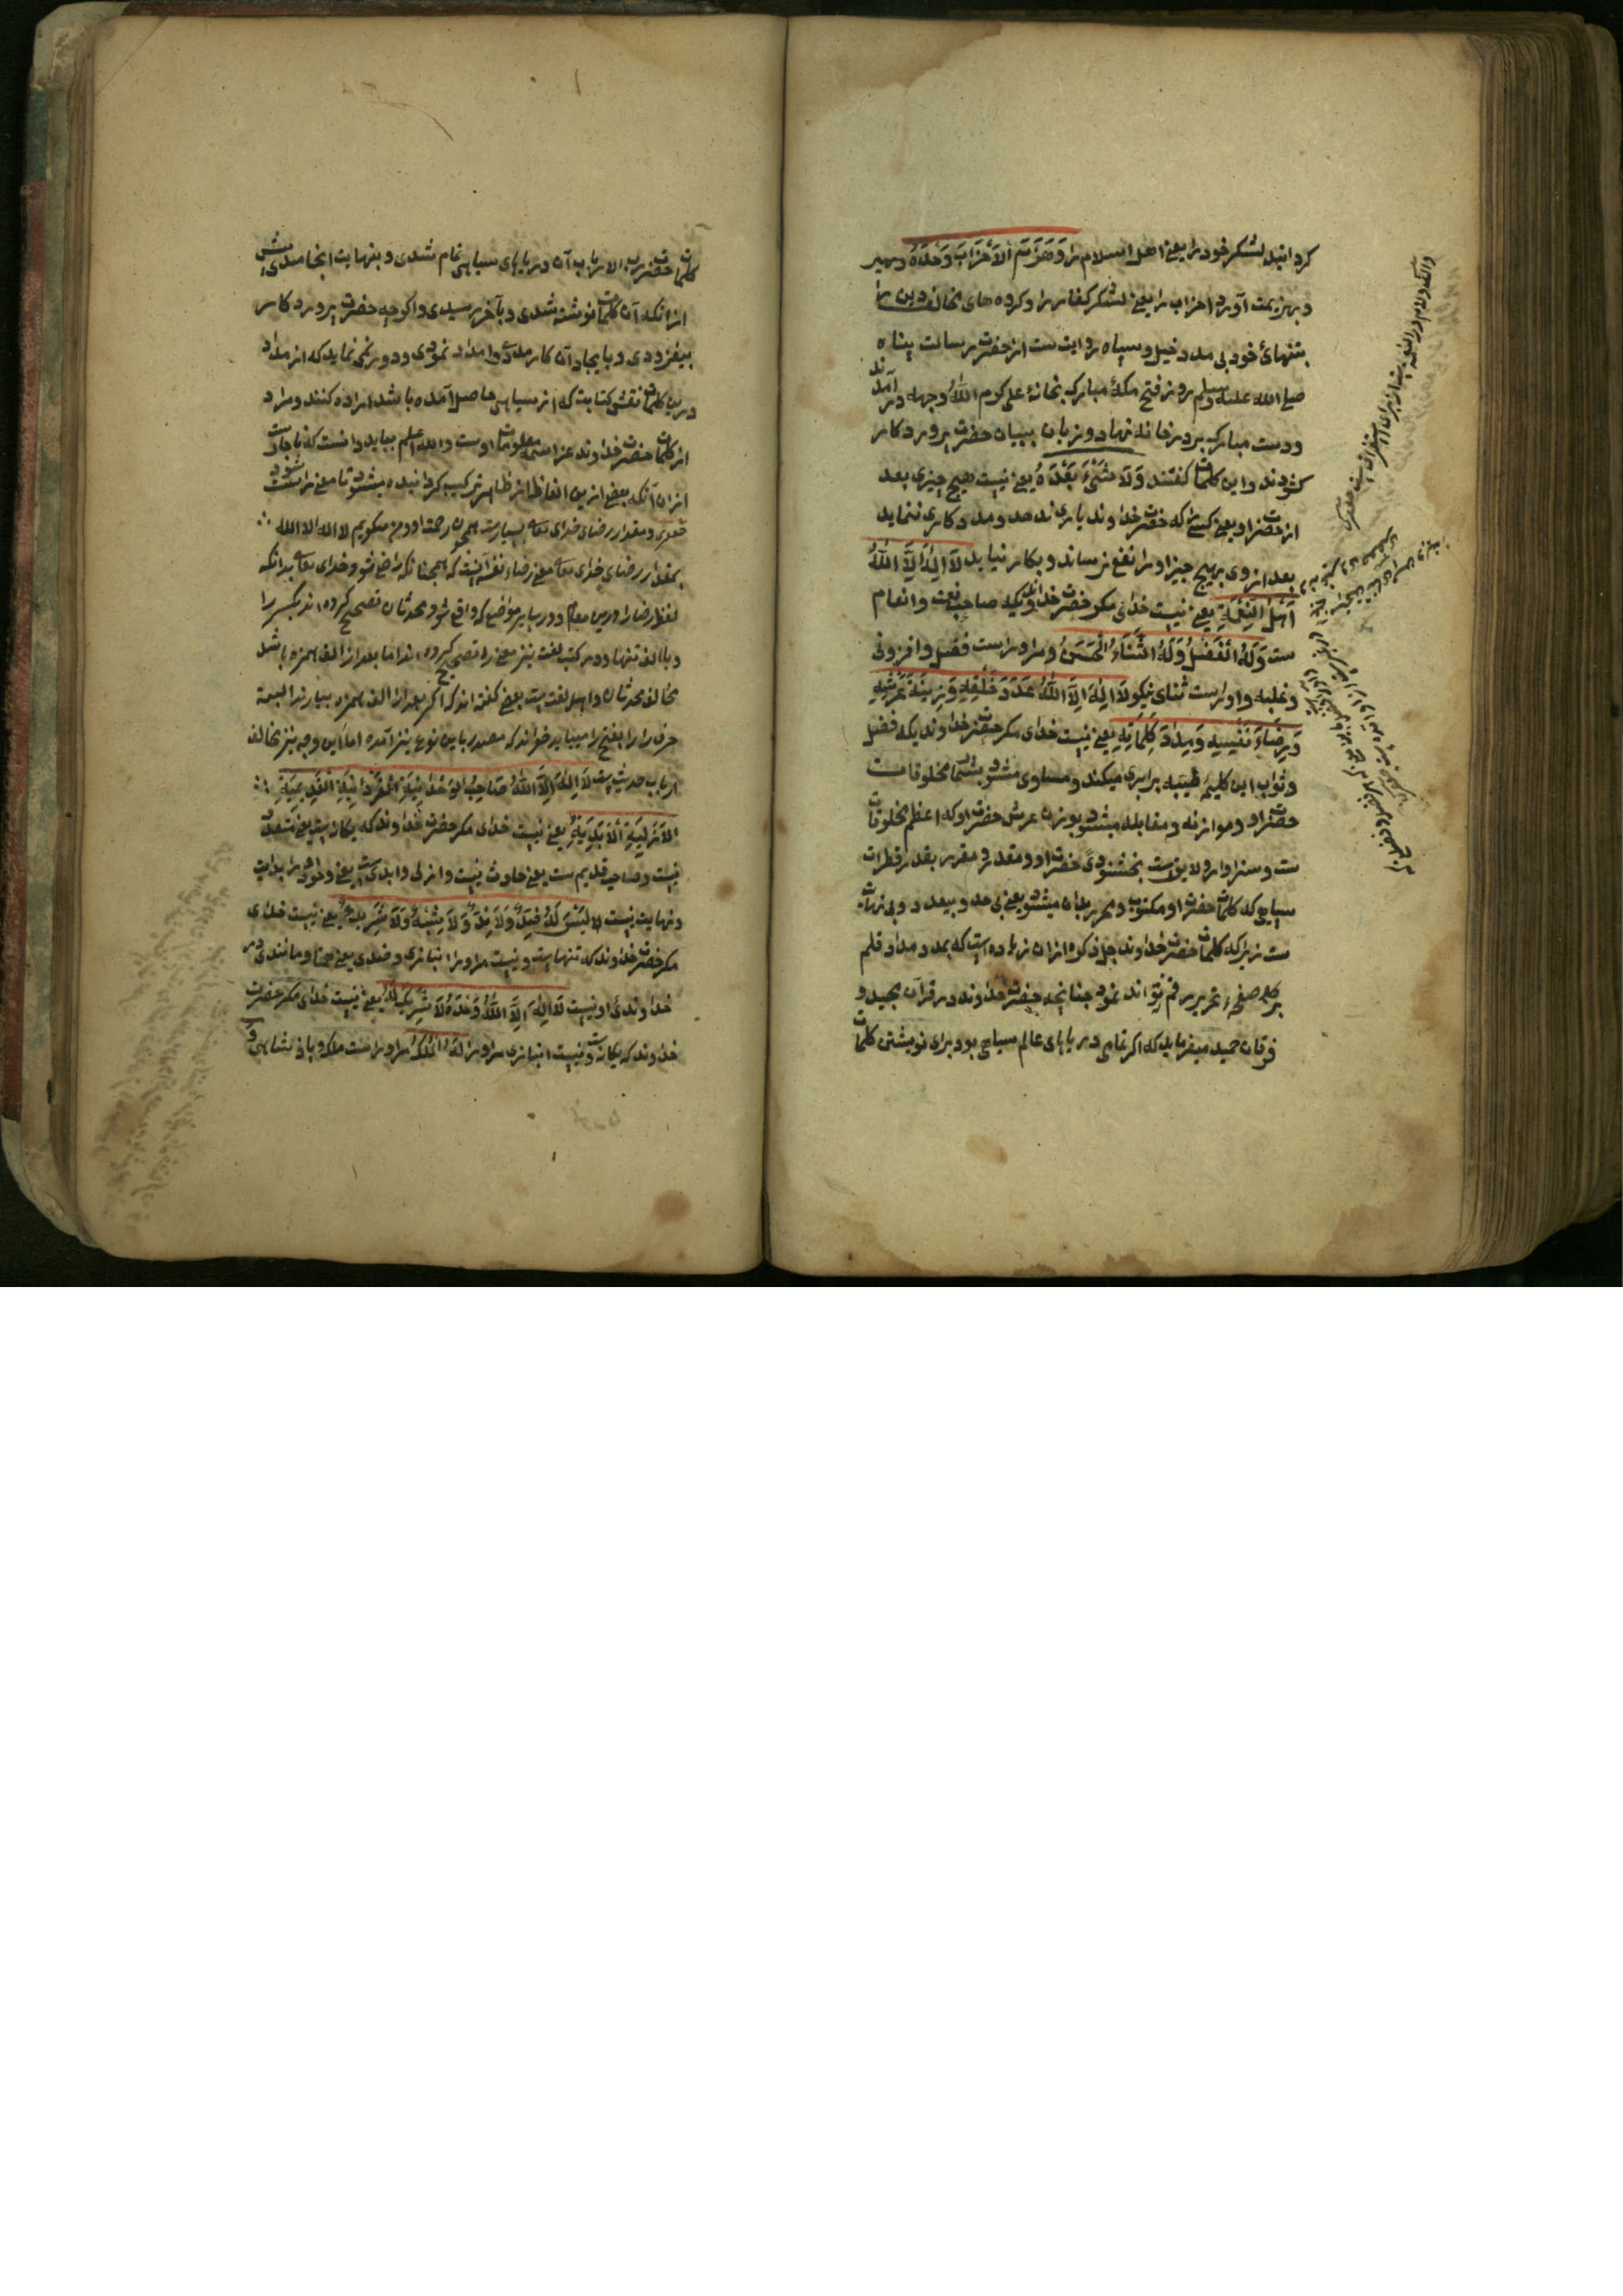 کردانید لشکر خود را یعنی اهل اسلام را وَهَزَمَ الْاَحْزَابَ وَحْدَهُ
و بهزیمت آورد احزاب را یعنی لشکر کفار را و کروه های مخالف دین را
بتنهائ خود بی مدد خیل و سپاه روایت ست از حضرت رسالت پناه
صلی الله علیه وسلم روز فتح مکهٔ مبارک بخانهٔ علی کرم الله وجهه در آمدند
و دست مبارک بر در خانه نهاد و زبان ببیان حضرت پروردکار
کشودند و این کلمات کفتند وَلَا شَیْءَ بَعْدَهُ یعنی نیست هیچ چیزی بعد
از حضرت او یعنی کسی که حضرت خداوند یاری ندهد و مددکاری ننماید
بعد از وی هیچ چیز او را نفع نرساند و بکار نیاید لَا اِلٰهَ اِلَّا اللهُ
اَهْلُ النِّعْمَةِ یعنی نیست خدائی مکر حضرت خداوندیکه صاحب نعمت و انعام
ست وَلَهُ الْفَضْلُ وَلَهُ الثَّنَاءُ الْحَسَنُ و مر او راست فضل و افزونی
و غلبه و او راست ثنای نیکو لَا اِلٰهَ اِلَّا اللهُ عَدَدَ خَلْقِهِ وَزِینَةَ عَرْشِهِ
وَرِضَاءَ نَفْسِهِ وَمِدَادَ کَلِمَاتِهِ یعنی نیست خدای مکر حضرت خداوندیکه فضل
و ثواب این کلمهٔ طیبه برابری میکند و مساوی میشود بشمار مخلوقات
حضرت او و موازنه و مقابله میشود بوزن عرش حضرت او که اعظم مخلوقات
ست و سزاوار و لایق ست بخشنودی حضرت او و مقدر و مقرر بقدر قطرات
سیاهی که کلمات حضرت او مکتوب و تحریر بدان میشود یعنی بی حد و بیعدد و بی نهایت
ست زیرا که کلمات حضرت خداوند جل ذکره ازان زیاده است که بمدد مداد و قلم
بر صفحهٔ تحریر رقم تواند نمود چنانچه حضرت خداوند در قرآن مجید و
فرقان حمید میفرماید که اکر تمامی دریاهای عالم سیاهی بود برای نویشتن کلمات
کلمات حضرت رب الارباب آن دریاهای سیاهی تمام شدی و بنهایت انجامیدی پیش
از انکه آن کلمات نوشته شدی و بآخر رسیدی و اکرچه حضرت پروردکار
بیفزودی و بایجاد آن کار مدد و امداد نمودی و دور نمی نماید که از مداد
درین کلمات نقش کتابت که از سیاهی حاصل آمده باشد اراده کنند و مراد
از کلمات حضرت خداوند عز اسمه معلومات اوست والله اعلم بباید دانست که
ازان آنکه بعضی ازین الفاظ از ظاهر ترکیب کردانیده میشود تا معنی راست شود
و مقدار رضای خدای تعالی بسیارست همچون رحمت او و من میکویم لا اله الا الله
بمقدار رضای خدای تعالی معنی رضاء نفسه آنست که همچنانکه راضی شود خدای تعالی بدانکه
لفظ رضا را درین مقام و در سایر مواضع که واقع شود محدثان تصحیح کرده اند بکسر را
و با الف تنها و در کتب لغت نیز تصحیح کرده اند اما بعد از الف همزه باشد
مخالف محدثان و اهل لغت ست بعضی کفته اند که اکر بعد از الف همزه بیارند البته
حرف را را بفتح را میباید خواند که مصدر باین نوع نیز آمده اما این وجه نیز مخالف
ارباب حدیث ست لَا اِلٰهَ اِلَّا اللهُ صَاحِبُ الْوَحْدَانِیَّةِ الْفَرْدَانِیَّةِ الْقَدِیمِیَّةِ
الْاَزَلِیَّةِ الْاَبَدِیَّةِ یعنی نیست خدای مکر حضرت خداوند که یکانه است یعنی متعدد
نیست و صاحب قدیم ست یعنی حادث نیست و ازلی و ابدی ست یعنی وجود او را بدایت
و نهایت نیست لَیْسَ لَهُ ضِدٌّ وَلَا نِدٌّ وَلَا شِبْهٌ وَلَا شَرِیكٌ یعنی نیست خدای
مکر حضرت خداوند که تنها ست و نیست مر او را انبازی و ضدی یعنی همتا و مانندی در
خداوندئ او نیست لَا اِلٰهَ اِلَّا اللهُ وَحْدَهُ لَا شَرِیكَ لَهُ یعنی نیست خدای مکر حضرت
خداوند که یکانه ست و نیست انبازی مر او را لَهُ الْمُلْكُ مر او راست ملک و پادشاهی